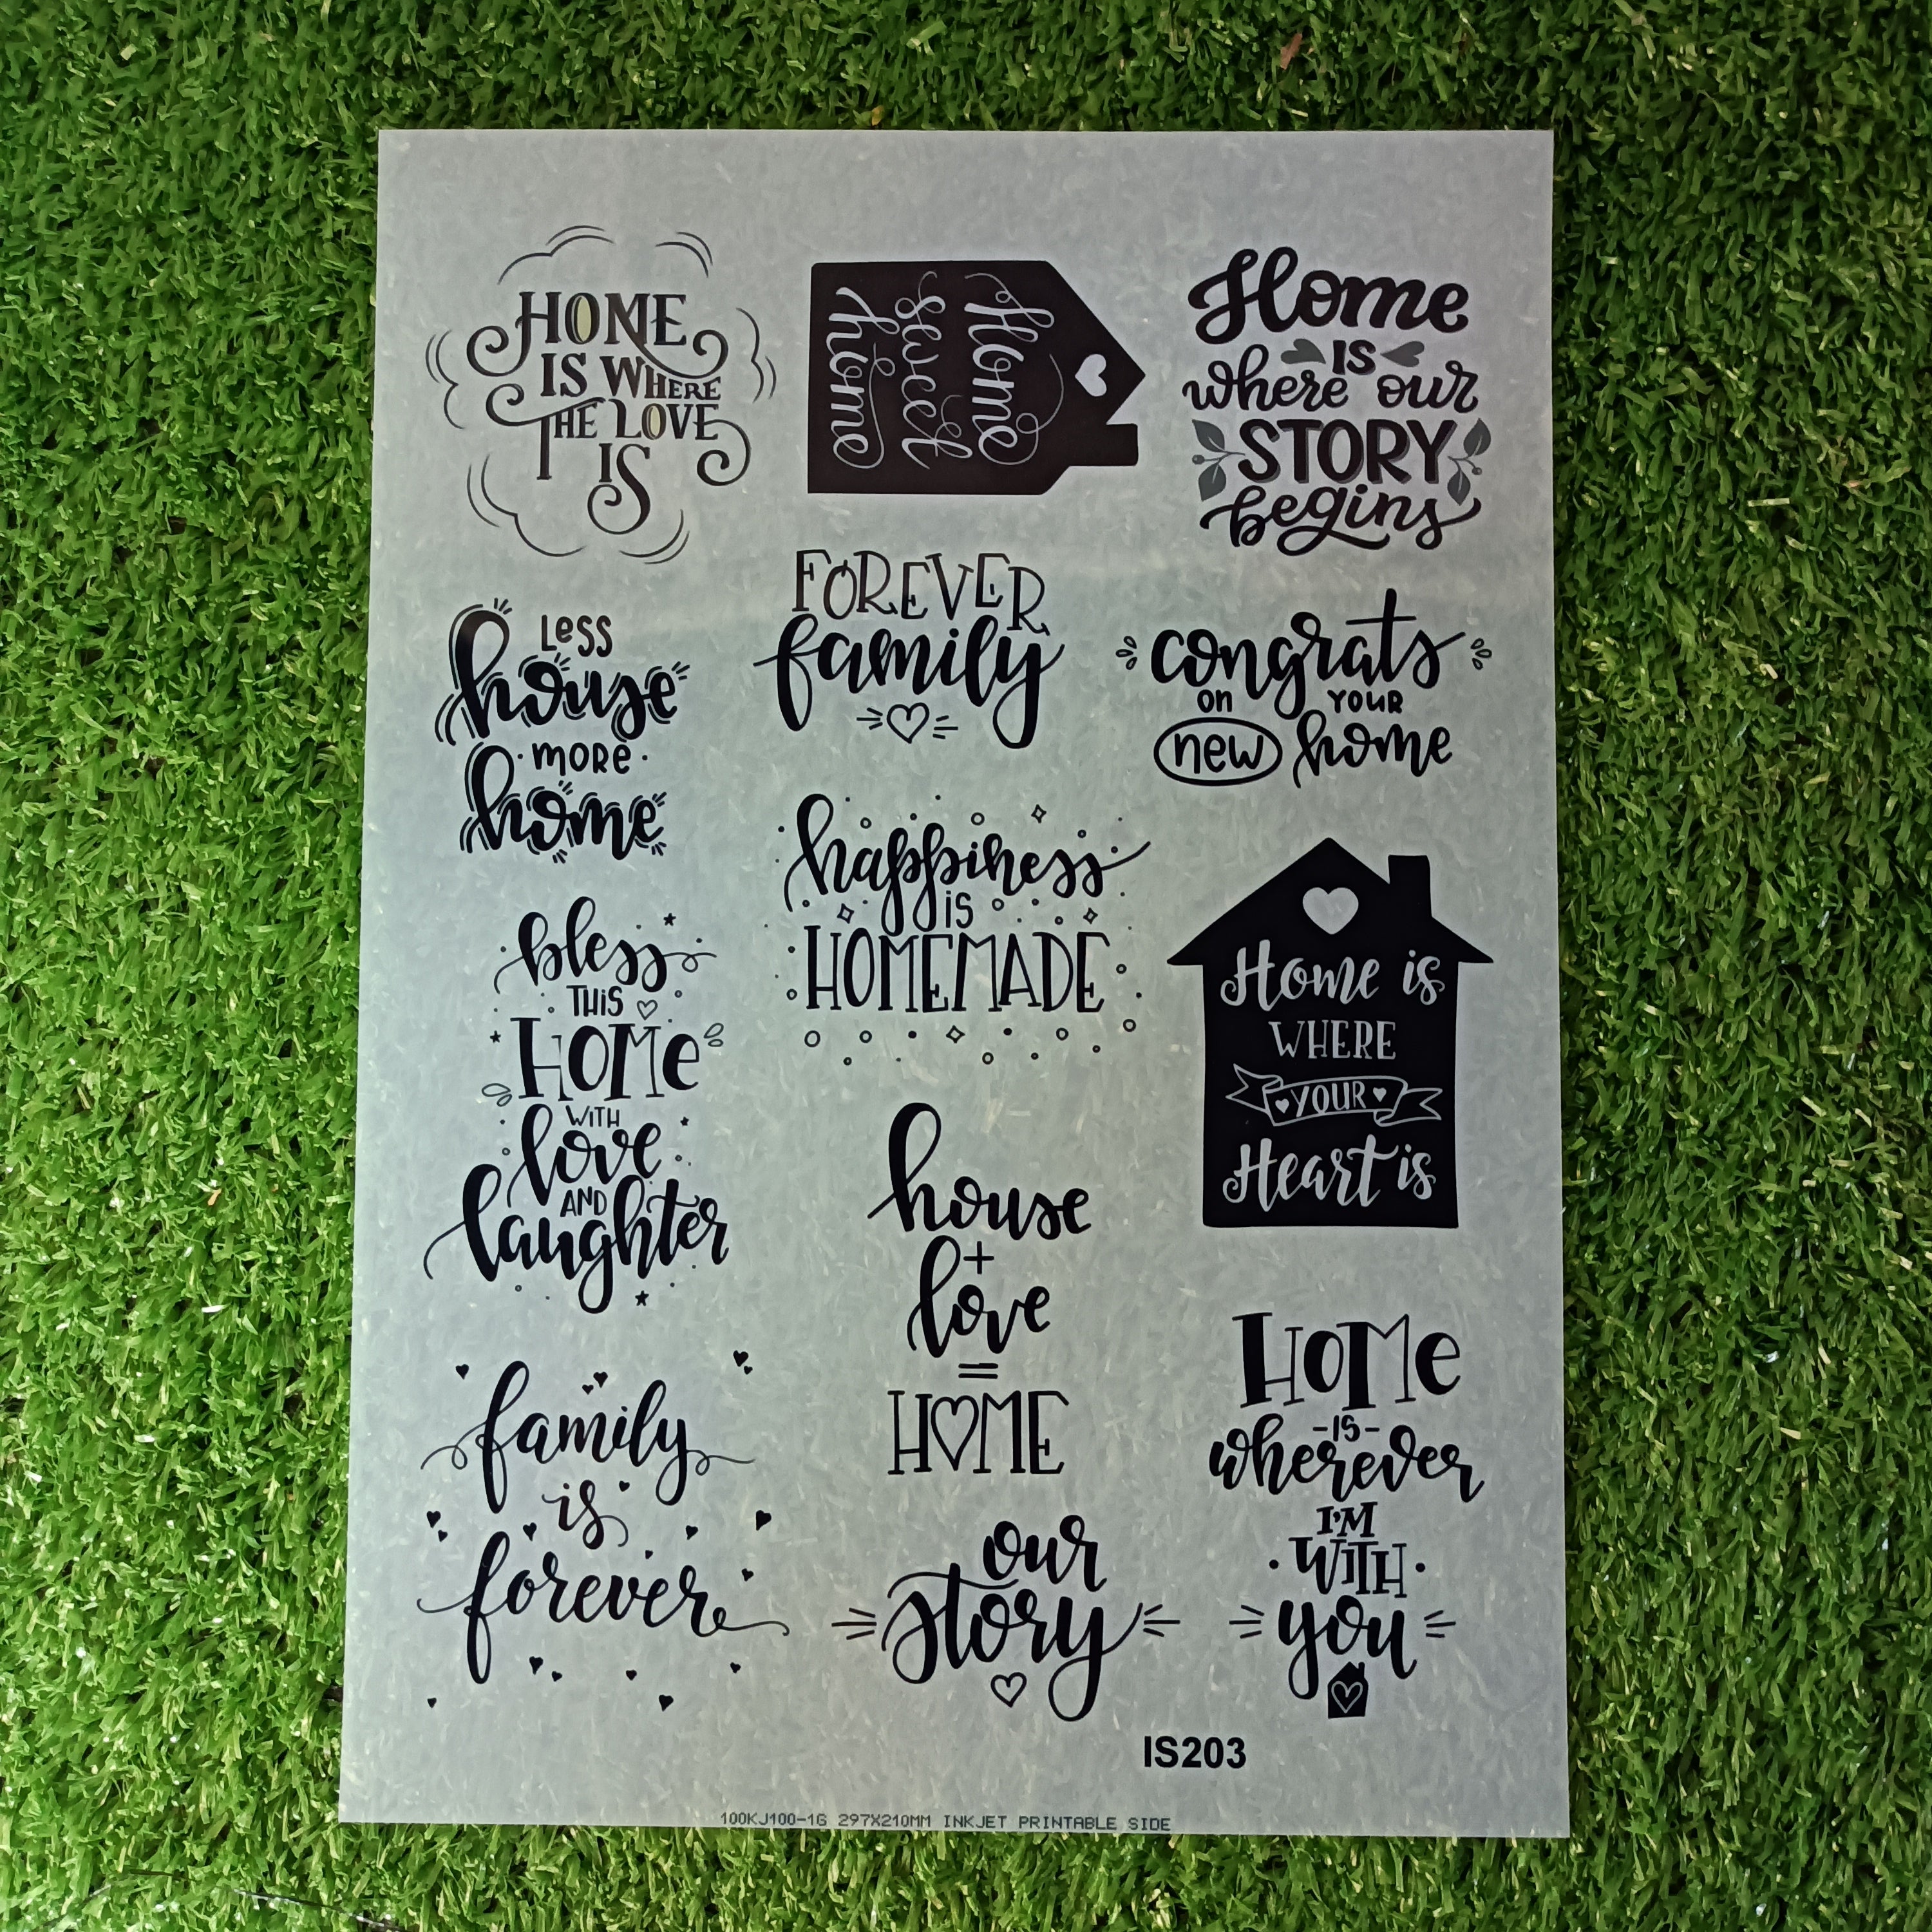 HOME
IS WHERE
THE LOVE
IS
Home
sweet
home
Home
IS
where our
STORY
begins
Less
house
·MORe·
home
FOREVER
family
congrats
on YOUR
new home
happiness
is
HOMEMADE
bless
THiS
HOMe
WiTH
love
AND
laughter
Home is
WHERE
YOUR
Heart is
house
+
love
=
HOME
family
is
forever
our
story
HOMe
-IS-
wherever
I'M
·WITH·
you
IS203
100KJ100-1G 297X210MM INKJET PRINTABLE SIDE